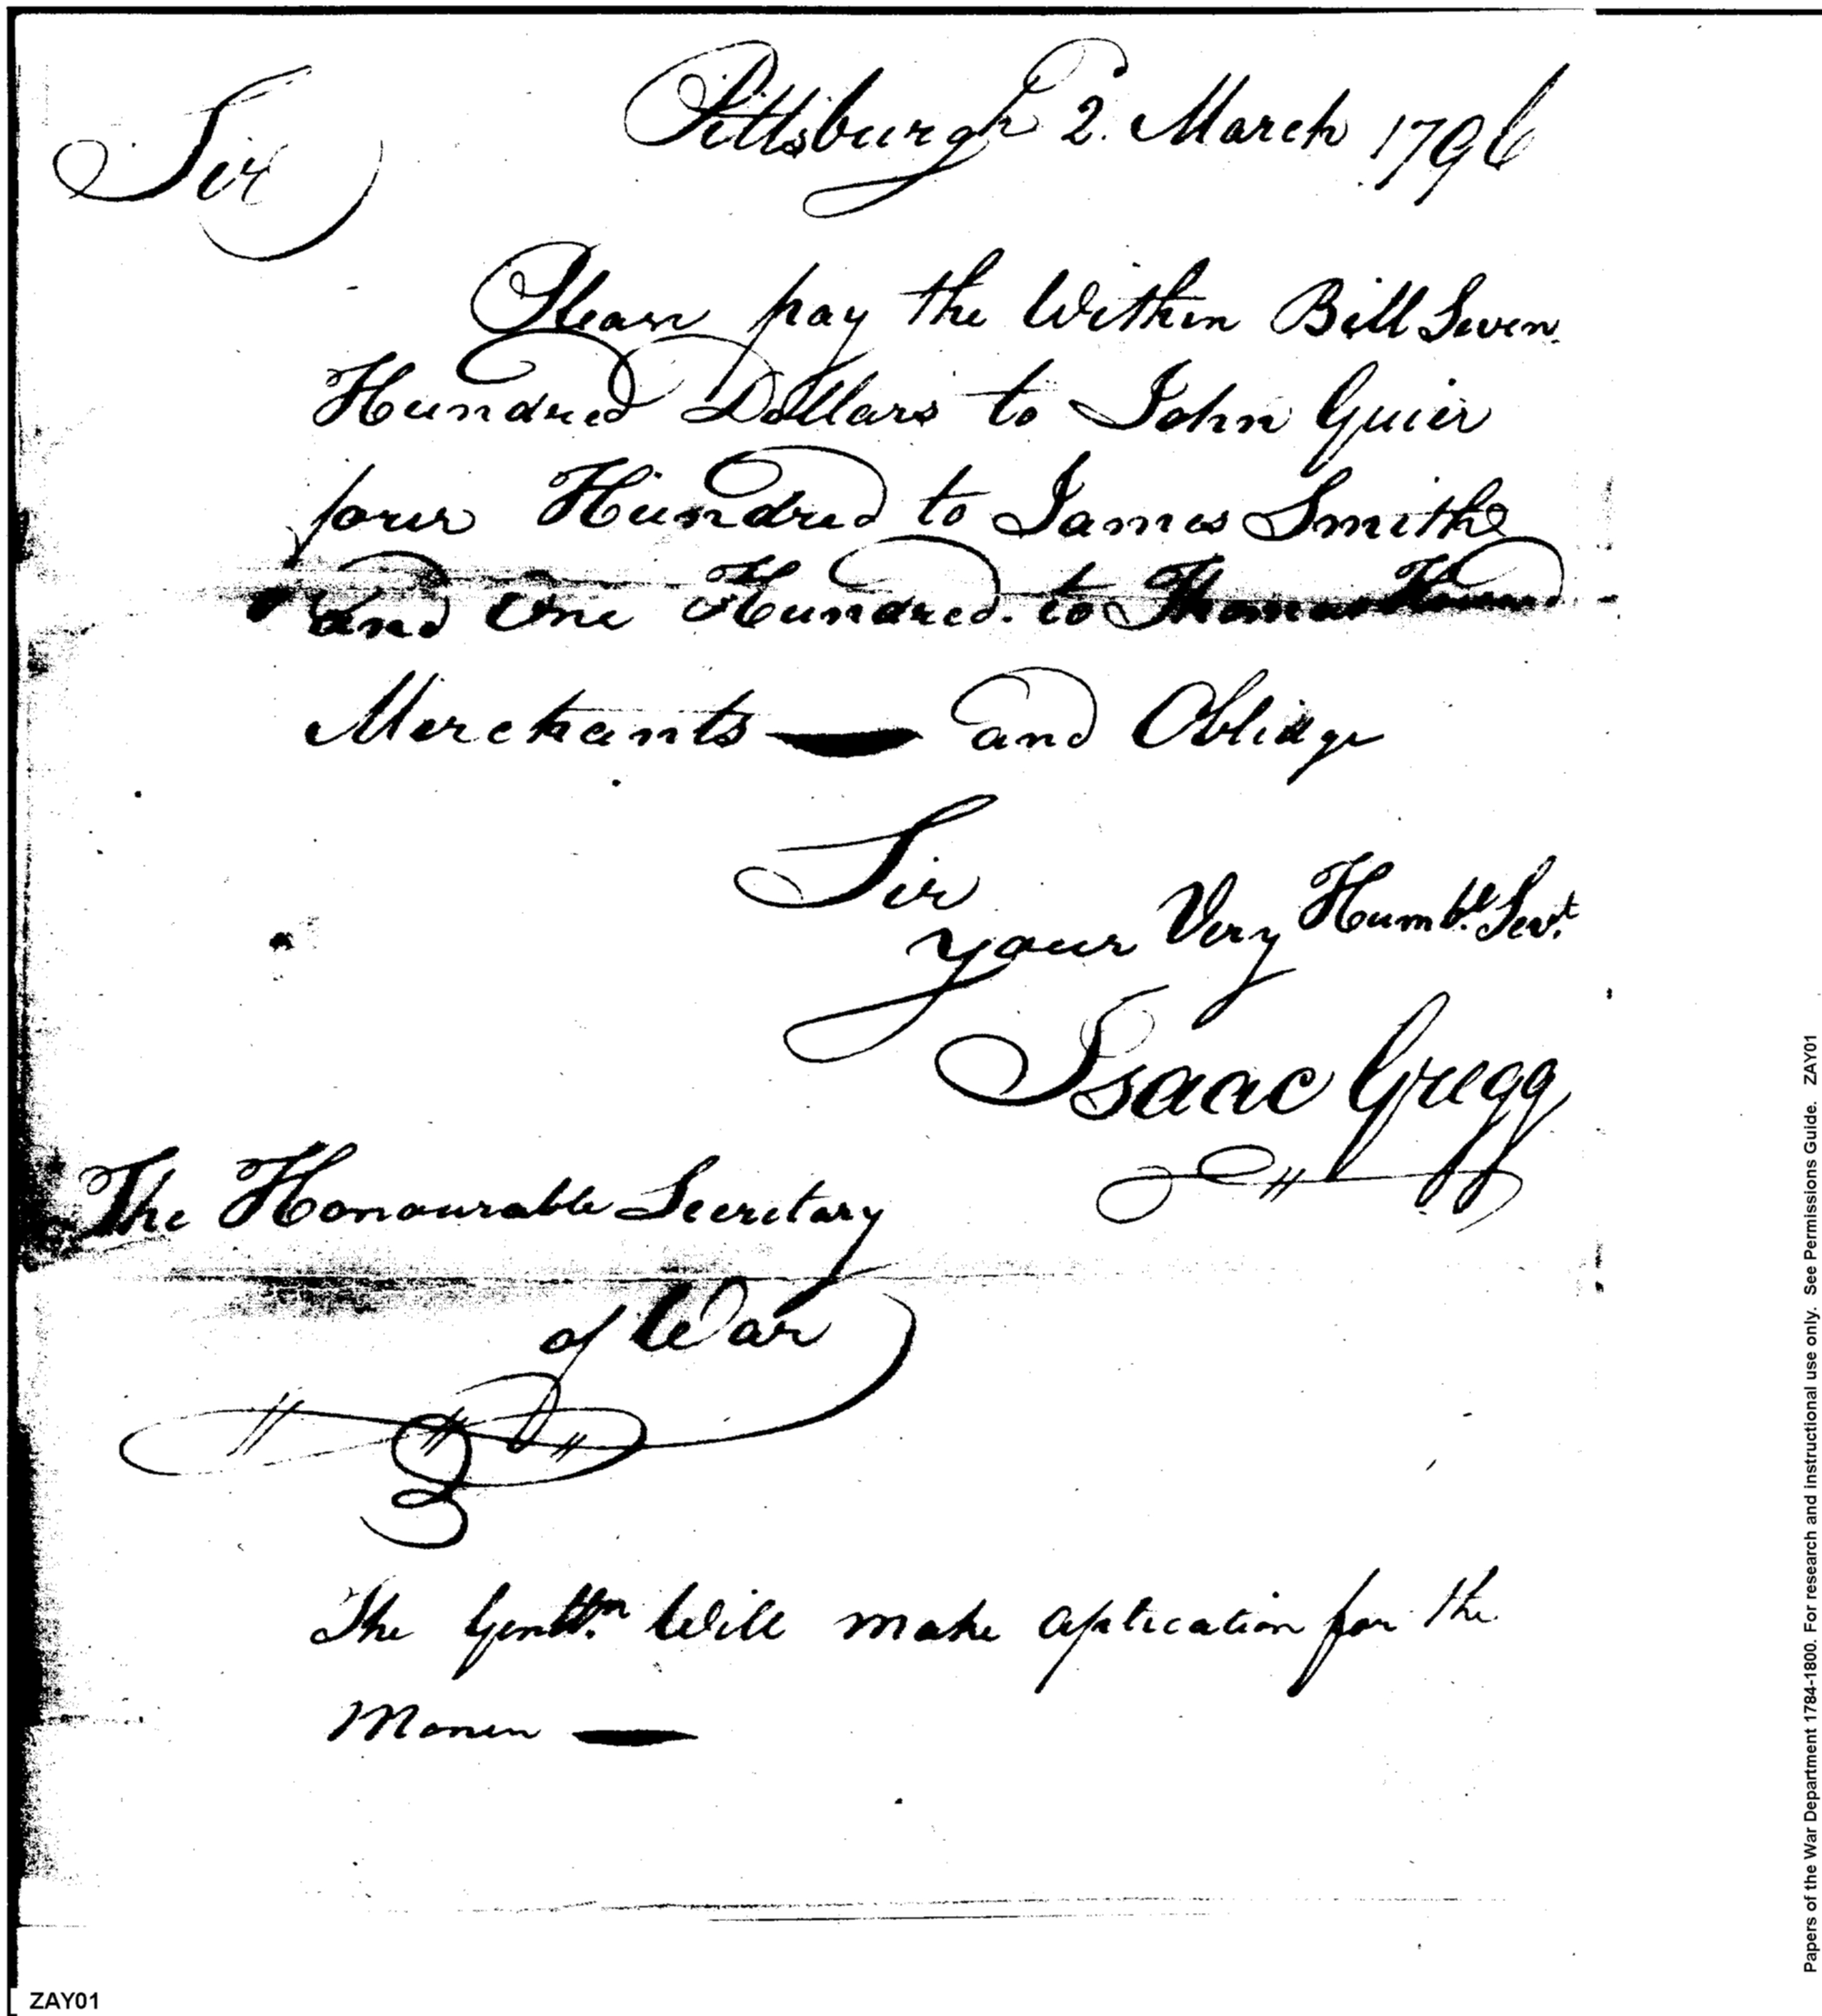 Pittsburgh 2d. March 1796
Sir
Please pay the Within Bill Seven
Hundred Dollars to John Guier
four Hundred to James Smith
and One Hundred. to Thomas
Merchants — and Oblidge
Sir
your Very Humbl. Servt.
Isaac Gregg
The Honourable Secretary
of War
The Gentln. Will make aplication for the
Monen —
Papers of the War Department 1784-1800. For research and instructional use only. See Permissions Guide. ZAY01
ZAY01